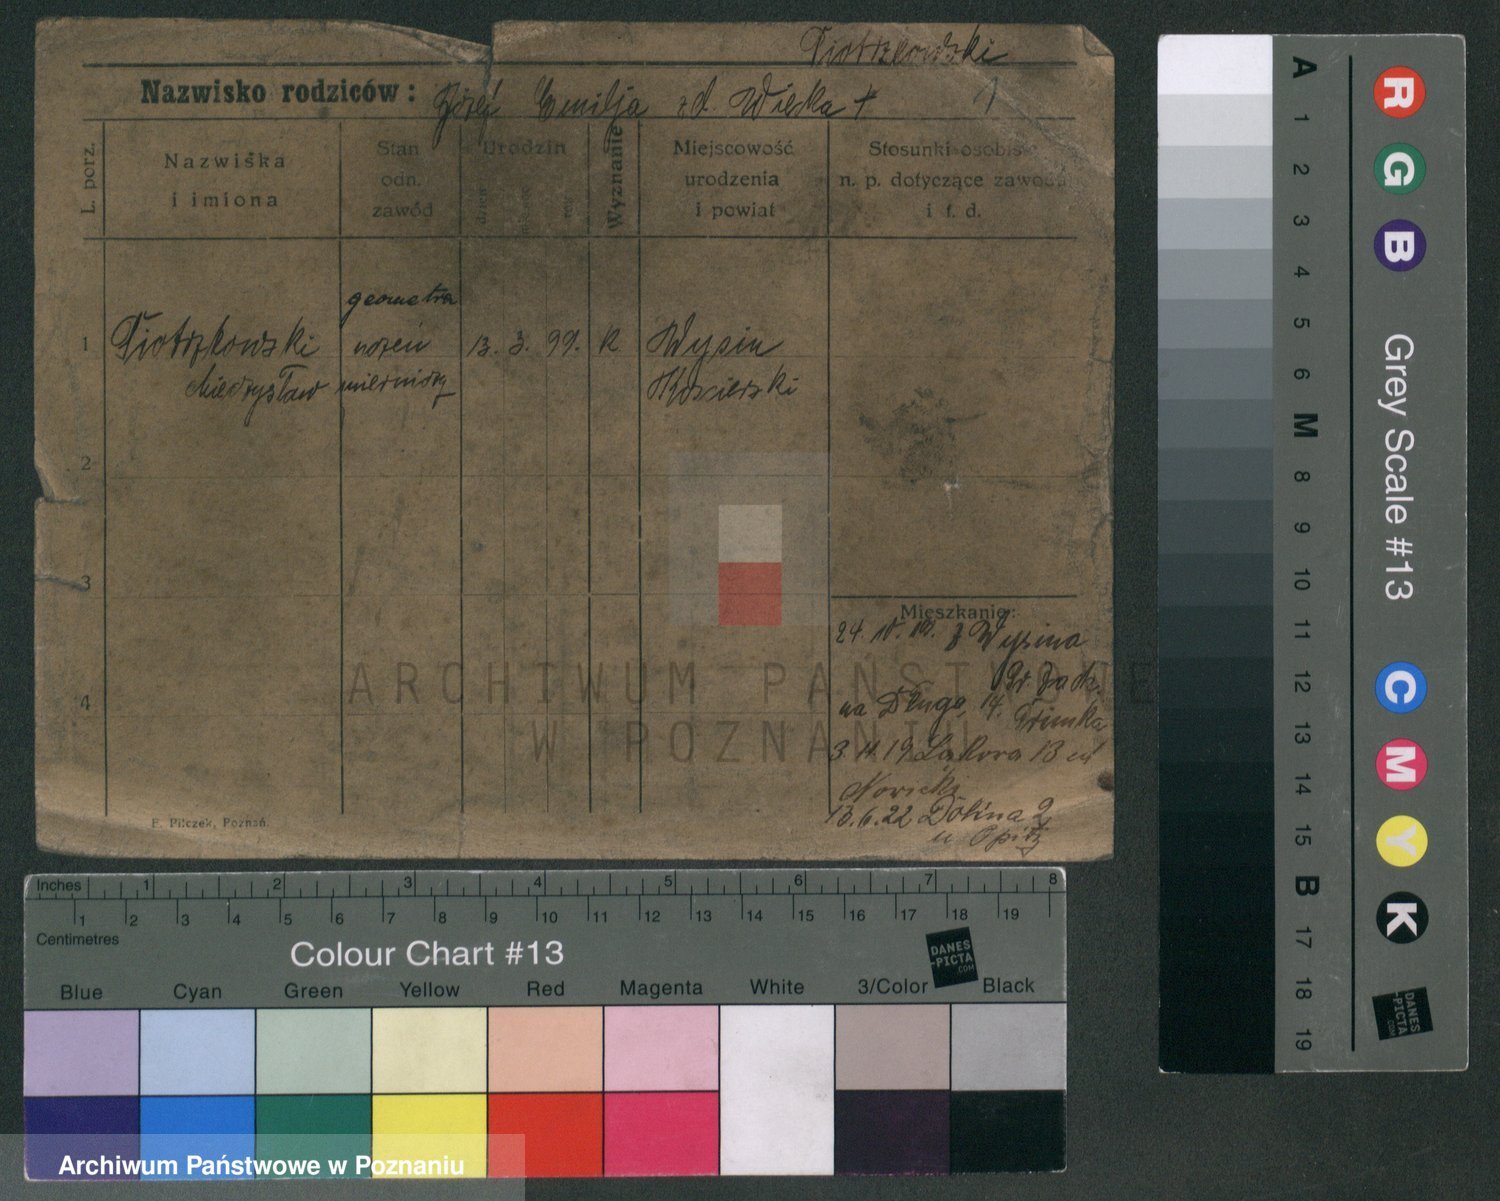 Piotrzkowski
Nazwisko rodziców: Józef Emilja zd. Wieka † 1
L. porz.
Nazwiska
i imiona
Stan
odn.
zawód
Urodzin
dzień
rok
Wyznanie
Miejscowość
urodzenia
i powiat
Stosunki osobiste
n. p. dotyczące zawodu
i t. d.
1
Piotrzkowski
Mieczysław
geometra
uczeń
mierniczy
13. 3. 99.
k
Wysin
Kościerski
2
3
4
Mieszkanie:
24. IV. 19. z Wysina
na Długa, 14.
3. 11. 19 Łąkowa 13 u
Nowicki
13.6.22 Dolina 2
u Opitz
F. Pilczek, Poznań.
ARCHIWUM PAŃSTWOWE
W POZNANIU
Inches 1 2 3 4 5 6 7 8
1 2 3 4 5 6 7 8 9 10 11 12 13 14 15 16 17 18 19
Centimetres
Colour Chart #13
DANES
-PICTA
.COM
Blue Cyan Green Yellow Red Magenta White 3/Color Black
Archiwum Państwowe w Poznaniu
A 1 2 3 4 5 6 M 8 9 10 11 12 13 14 15 B 17 18 19
R G B
Grey Scale #13
C M Y K
DANES
-PICTA
.COM